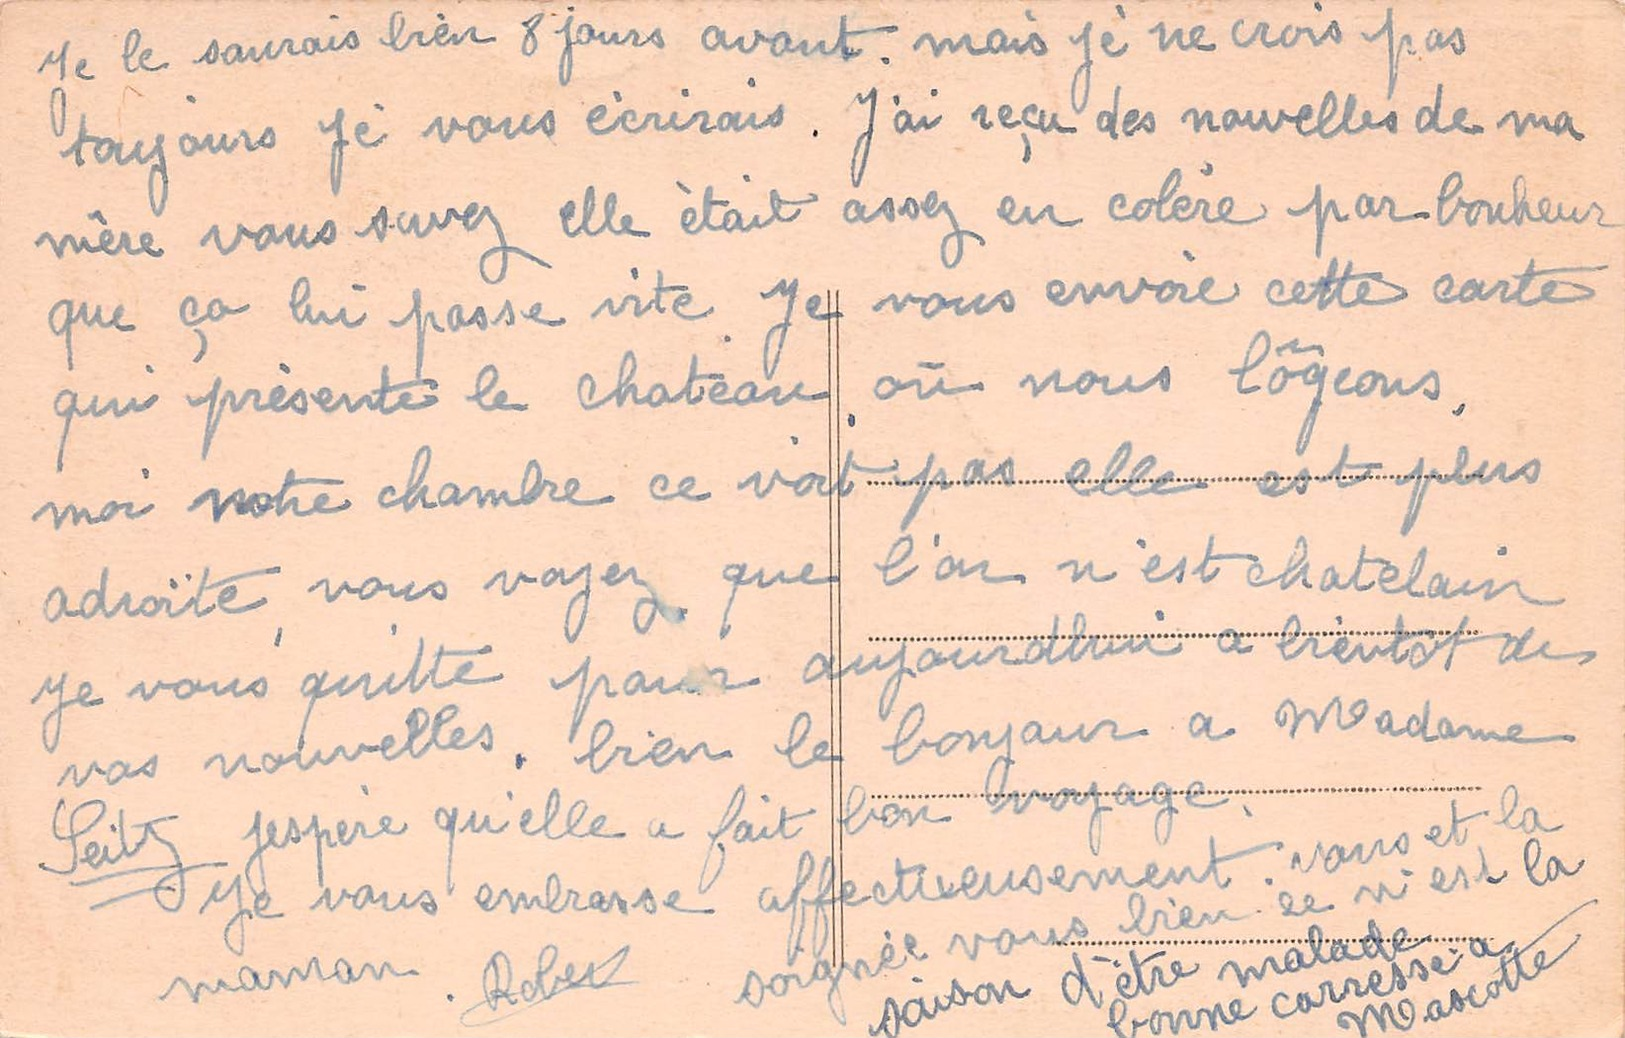 Je le saurais bien 8 jours avant. mais je ne crois pas
toujours je vous écrirais. J'ai reçu des nouvelles de ma
mère vous savez elle était assez en colère par bonheur
que ça lui passe vite. Je vous envoie cette carte
qui présente le chateau, où nous lôgeons.
moi notre chambre ce voit pas elle est plus
adroite, vous voyez que l'on n'est chatelain
je vous quitte pour aujourdhui a bientôt de
vos nouvelles. bien le bonjour a Madame
Seitz jespère qu'elle a fait bon voyage.
Je vous embrasse affectieusement. vous et la
maman. Robert
soignée vous bien ce n'est la
saison d'être malade
bonne carresse a
Mascotte